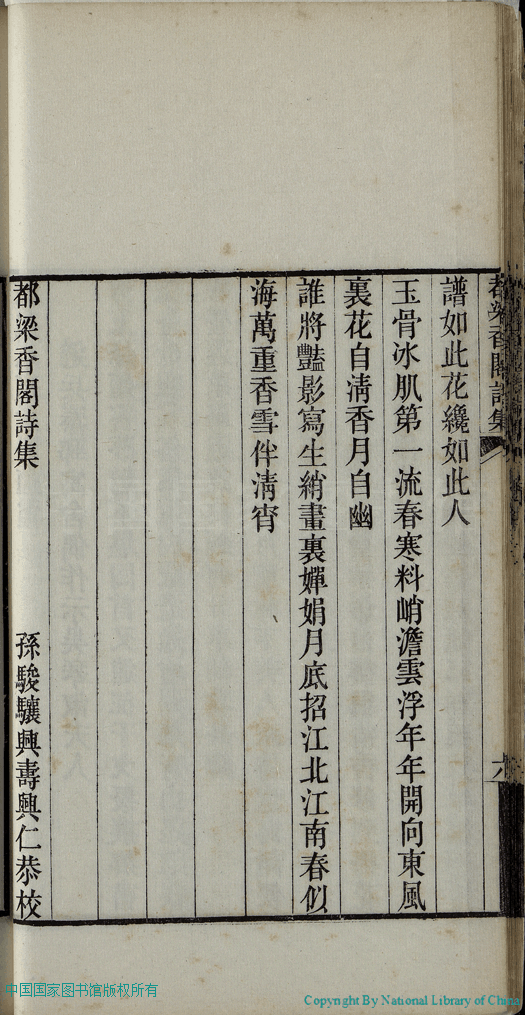 都梁香閣詩集
六
譜如此花纔如此人
玉骨冰肌第一流春寒料峭澹雲浮年年開向東風
裏花自淸香月自幽
誰將豔影寫生綃畫裏嬋娟月底招江北江南春似
海萬重香雪伴淸宵
都梁香閣詩集
孫駿驤興壽興仁恭校
中国国家图书馆版权所有
Copyright By National Library of China